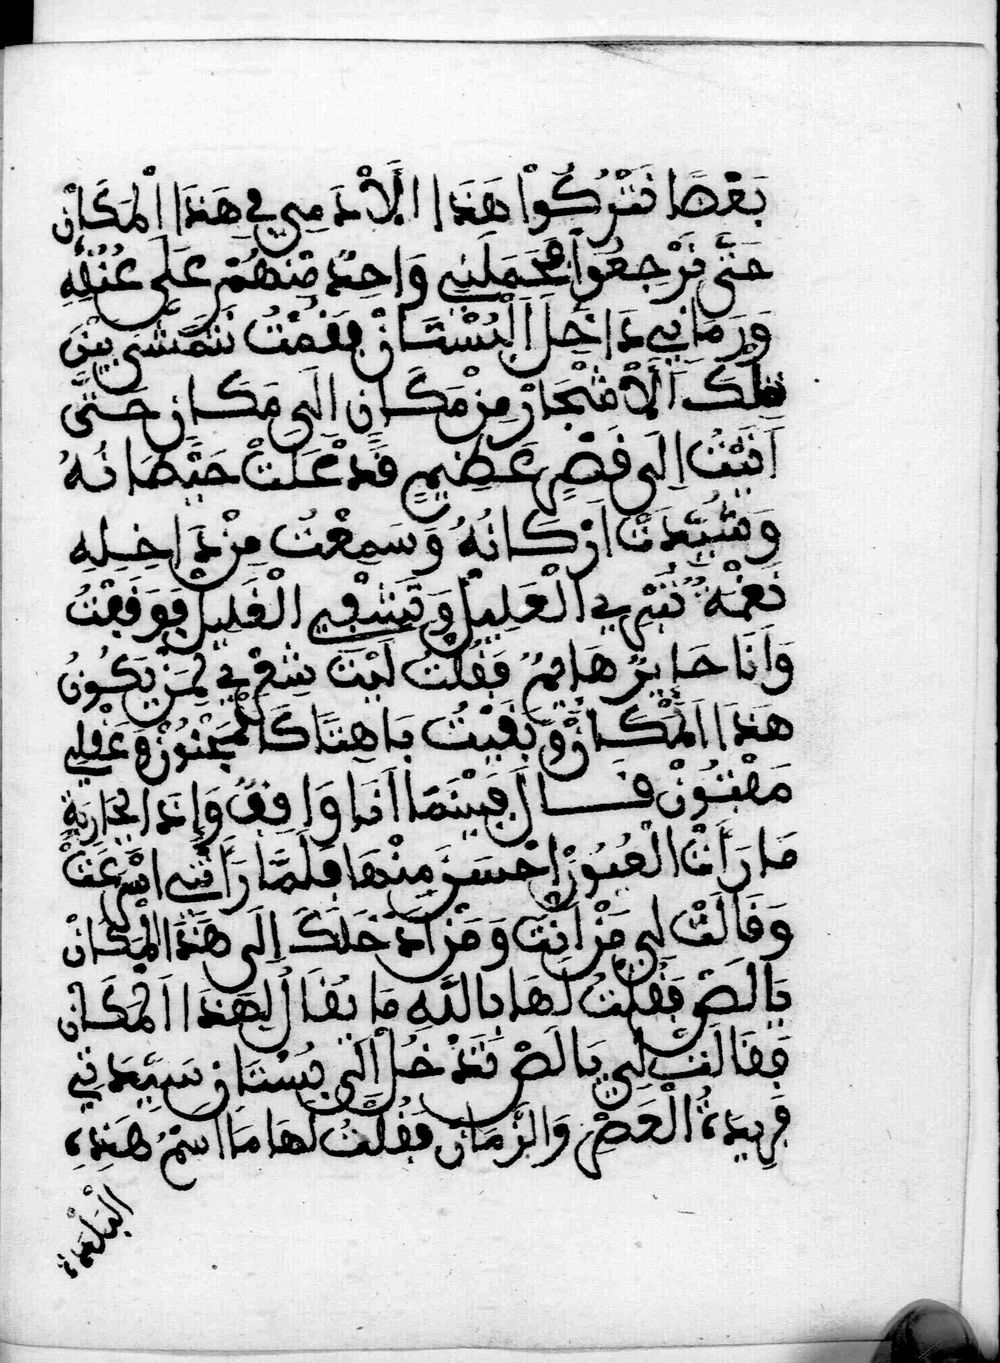 بَعْضًا نَتْرُكُواْ هَذَا اَلَادَمِي فِي هَذَا اْلمَكَانْ
حَتَّى نَرْجِعُوا فَحَمَلَنِي وَاحِدٌ مِنْهُمْ عَلَى عُنُقِهِ
وَرَمَانِي دَاخِلَ اَلْبُسْتَانْ فَقُمْتُ نَتَمَشَّى بَيْنَ
تِلْكَ اَلَاشْجَارْ مِنْ مَكَانٍ اِلَى مَكَانٍ حَتَّى
اَتَيْتُ اِلَى قَصْرٍ عَظِيمٍ قَدْ عَلَتْ حَيْطَانُهُ
وَشُيِّدَتْ اَرْكَانُهُ وَسَمِعْتُ مِنْ دَاخِلِهِ
نَغْمَةً تُبْرِي الْعَلِيلْ وَتَشْفِي الْغَلِيلْ فَوَقَفْتُ
وَاَنَا حَايِرٌ هَايِمٌ فَقُلْتُ لَيْتَ شِعْرِي لِمَنْ يَكُونُ
هَذَا اَلْمَكَانْ وَبَقَيْتُ بَاهِتًا كَالْمَجْنُونْ وَعَقْلِي
مَفْتُونْ قَالَ فَبَيْنَمَا اَنَا وَاقِفٌ وَاِذَا بِجَارِيَةٍ
مَا رَأَتْ الْعُيُونْ اَحْسَنَ مِنْهَا فَلَمَّا رَأَتْنِي اَسْرَعَتْ
وَقَالَتْ لِي مَنْ اَنْتَ وَمَنْ اَدْخَلَكَ اِلَى هَذَا الْمَكَانْ
يَا لَصْ فَقُلْتُ لَهَا بِاللَّهِ مَا يُقَالُ لِهَذَا اَلْمَكَانْ
فَقَالَتْ لِي يَا لَصْ تَدْخُلْ اِلَى بُسْتَانِ سَيِّدَتِي
فَرِيدَةُ الْعَصْرِ وَالزَّمَانْ فَقُلْتُ لَهَا مَا اسْمُ هَذِهِ
الْبَلْدَةْ